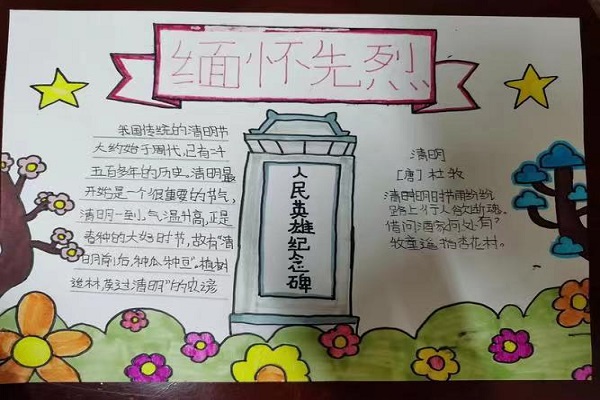 缅怀先烈
我国传统的清明节
大约始于周代,已有二千
五百多年的历史。清明最
开始是一个很重要的节气,
清明一到,气温升高,正是
春种的大好时节,故有"清
明前后,种瓜种豆"。植树
造林,莫过清明"的农谚
人民英雄纪念碑
清明
[唐] 杜牧
清明时节雨纷纷
路上行人欲断魂。
借问酒家何处有?
牧童遥指杏花村。